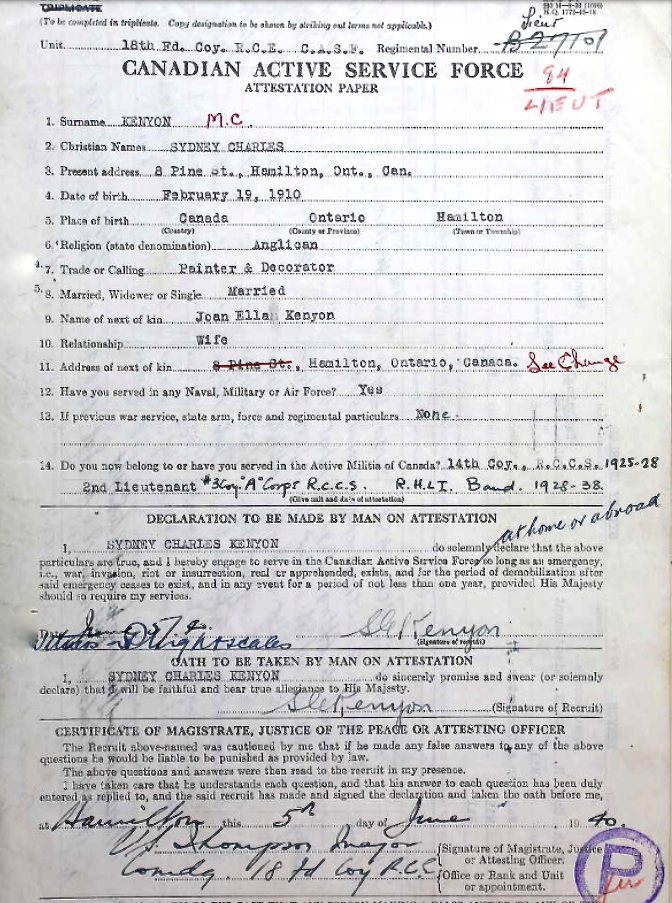 TRIPLICATE
(To be completed in triplicate. Copy designation to be shown by striking out terms not applicable.)
Lieut
Unit 18th Fd. Coy. R.C.E. C.A.S.F. Regimental Number B27101
CANADIAN ACTIVE SERVICE FORCE
94
ATTESTATION PAPER
LIEUT
1. Surname KENYON M.C.
2. Christian Names SYDNEY CHARLES
3. Present address 8 Pine st., Hamilton, Ont., Can.
4. Date of birth February 19, 1910
5. Place of birth Canada Ontario Hamilton
(Country) (County or Province) (Town or Township)
6. Religion (state denomination) Anglican
4. 7. Trade or Calling Painter & Decorator
5. 8. Married, Widower or Single Married
9. Name of next of kin Joan Ella Kenyon
10. Relationship Wife
11. Address of next of kin 8 Pine St., Hamilton, Ontario, Canada. See Change
12. Have you served in any Naval, Military or Air Force? Yes
13. If previous war service, state arm, force and regimental particulars None
14. Do you now belong to or have you served in the Active Militia of Canada? 14th Coy., R.C.C.S. 1925-28
2nd Lieutenant #3 Coy "A" Corps R.C.C.S. R.H.L.I. Band. 1928-38.
(Give unit and date of attestation)
DECLARATION TO BE MADE BY MAN ON ATTESTATION
at home or abroad
I, SYDNEY CHARLES KENYON do solemnly declare that the above
particulars are true, and I hereby engage to serve in the Canadian Active Service Force so long as an emergency,
i.e., war, invasion, riot or insurrection, real or apprehended, exists, and for the period of demobilization after
said emergency ceases to exist, and in any event for a period of not less than one year, provided His Majesty
should so require my services.
Date June 5/40. SCKenyon
Witness (Signature of recruit)
OATH TO BE TAKEN BY MAN ON ATTESTATION
I, SYDNEY CHARLES KENYON do sincerely promise and swear (or solemnly
declare) that I will be faithful and bear true allegiance to His Majesty.
SCKenyon (Signature of Recruit)
CERTIFICATE OF MAGISTRATE, JUSTICE OF THE PEACE OR ATTESTING OFFICER
The Recruit above-named was cautioned by me that if he made any false answers to any of the above
questions he would be liable to be punished as provided by law.
The above questions and answers were then read to the recruit in my presence.
I have taken care that he understands each question, and that his answer to each question has been duly
entered as replied to, and the said recruit has made and signed the declaration and taken the oath before me,
at Hamilton this 5th day of June 1940.
Thompson Major (Signature of Magistrate, Justice
or Attesting Officer.
Comdg. 18 Fd Coy RCE (Office or Rank and Unit
or appointment.
P